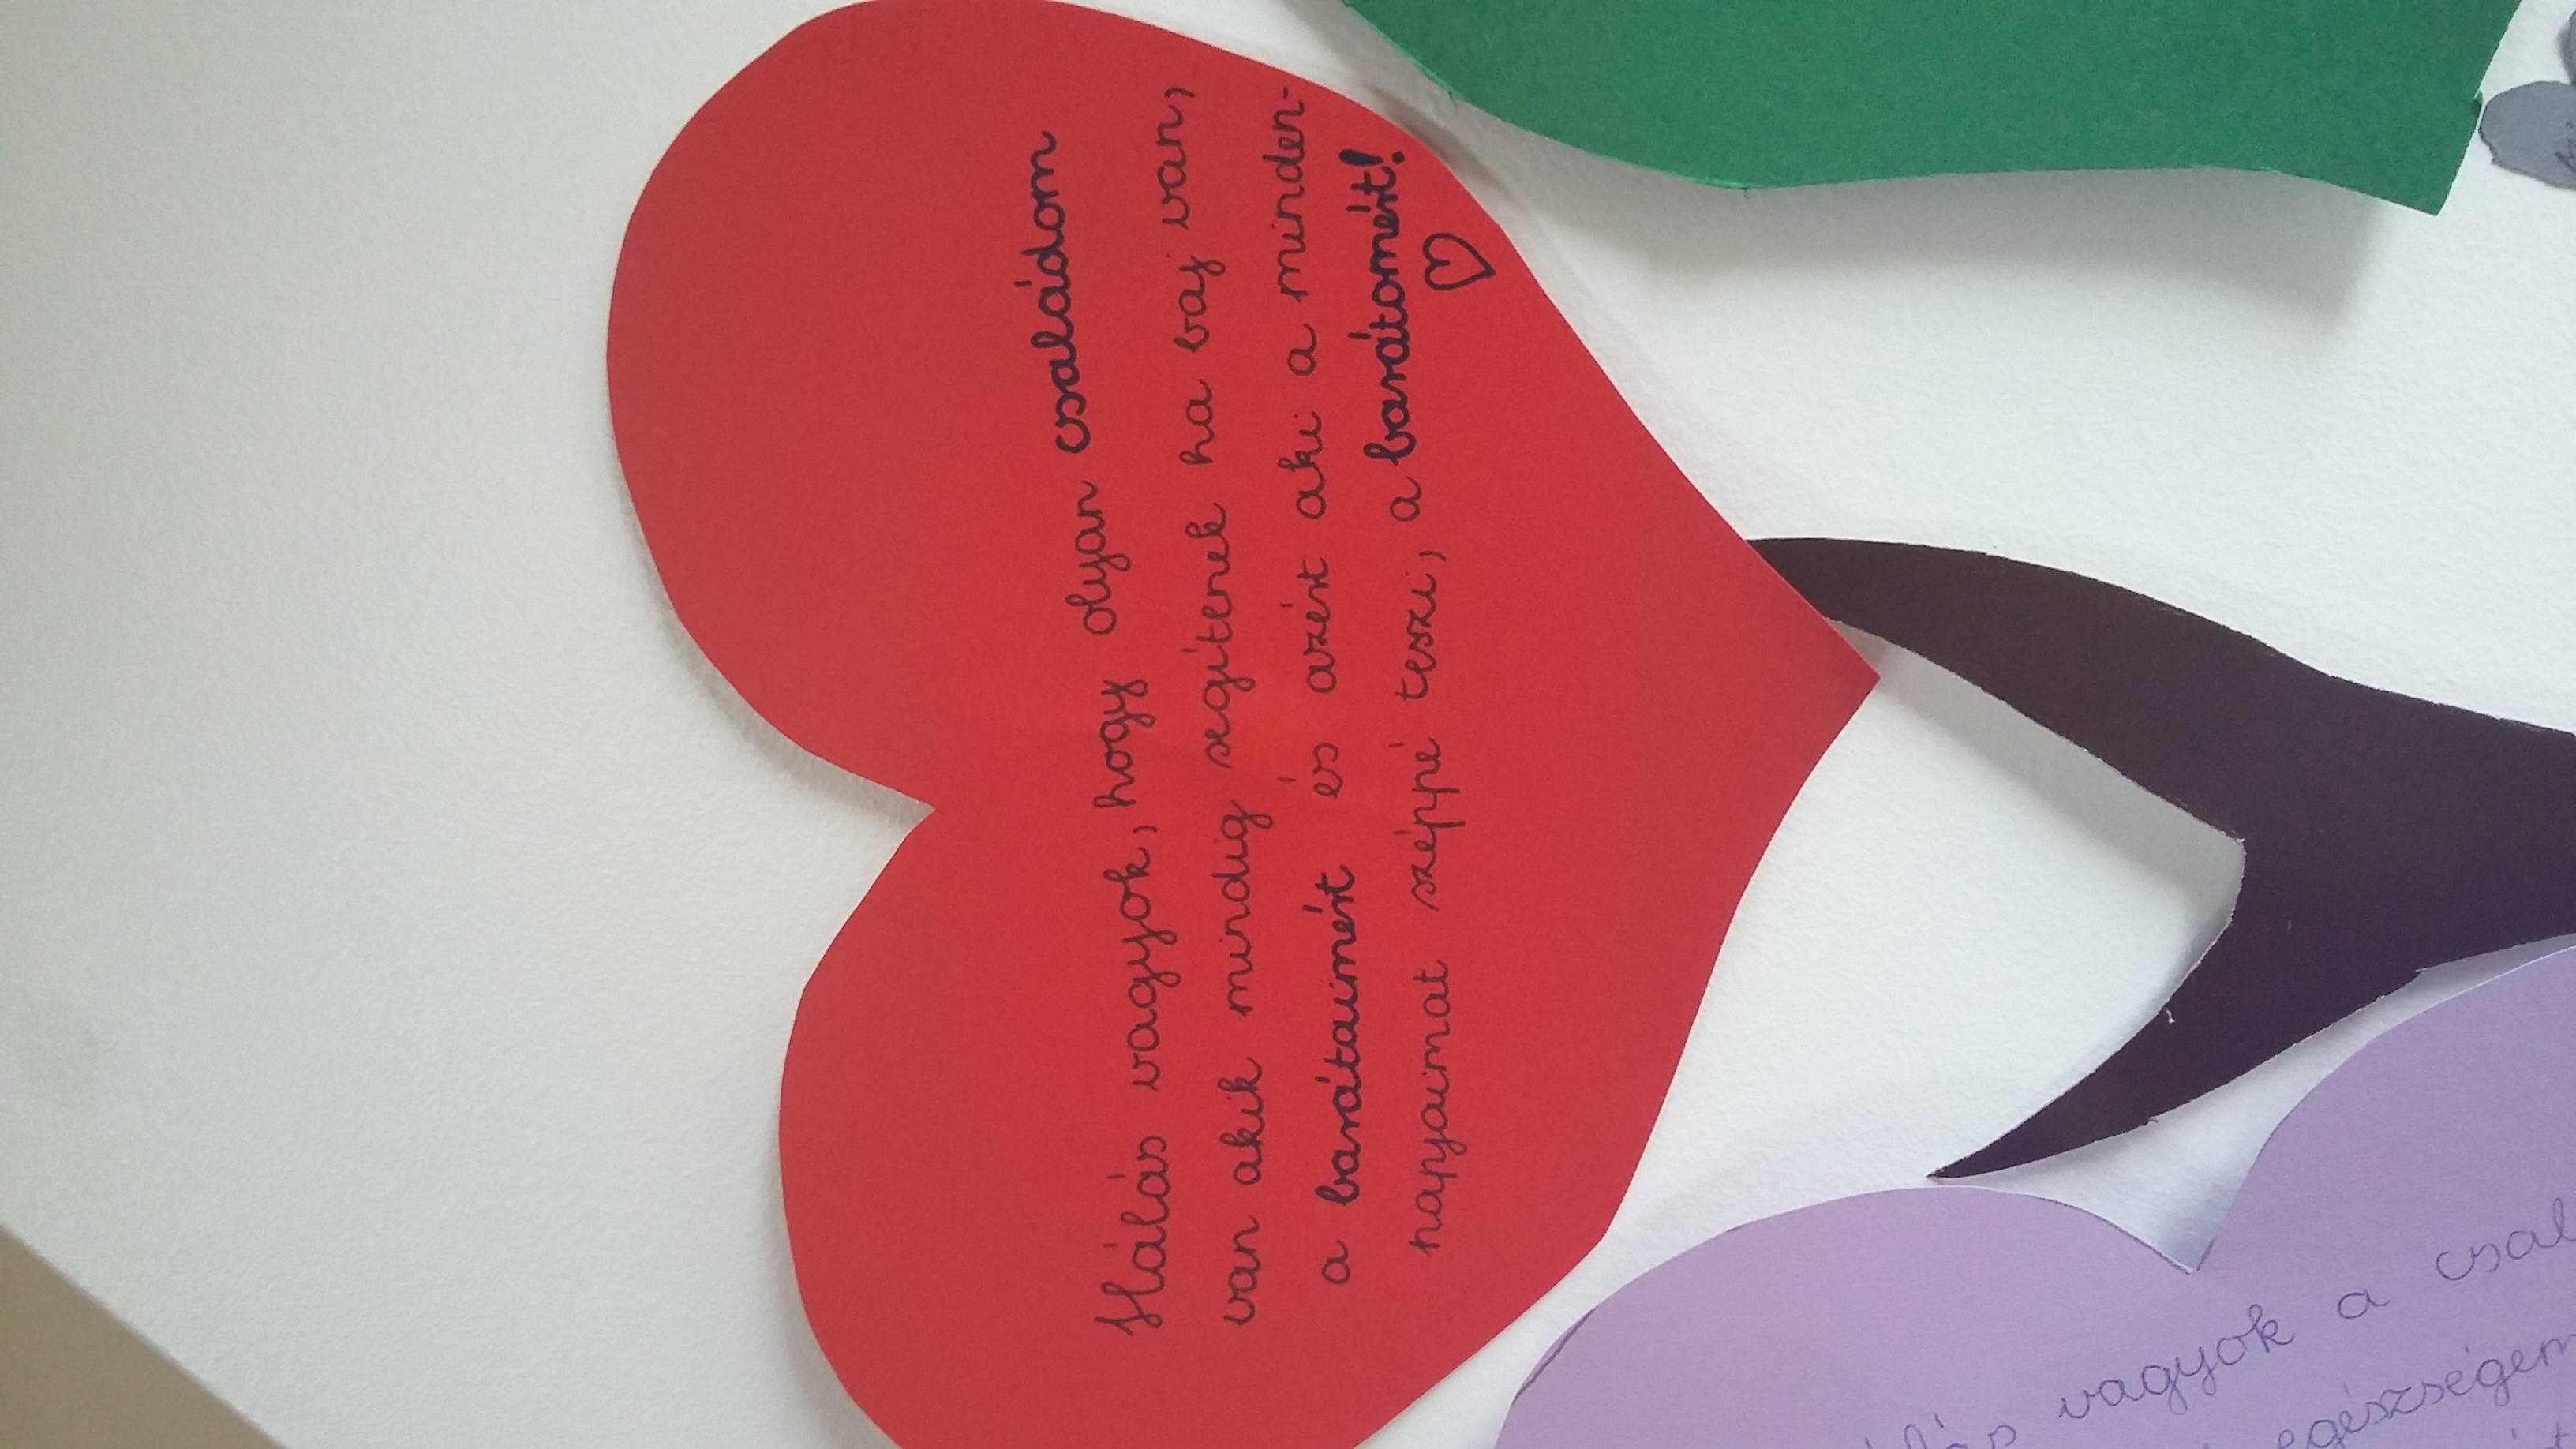 Hálás vagyok, hogy olyan családom
van akik mindig segítenek ha baj van,
a barátaimért és azért aki a minden-
napjaimat széppé teszi, a barátomért!
vagyok a